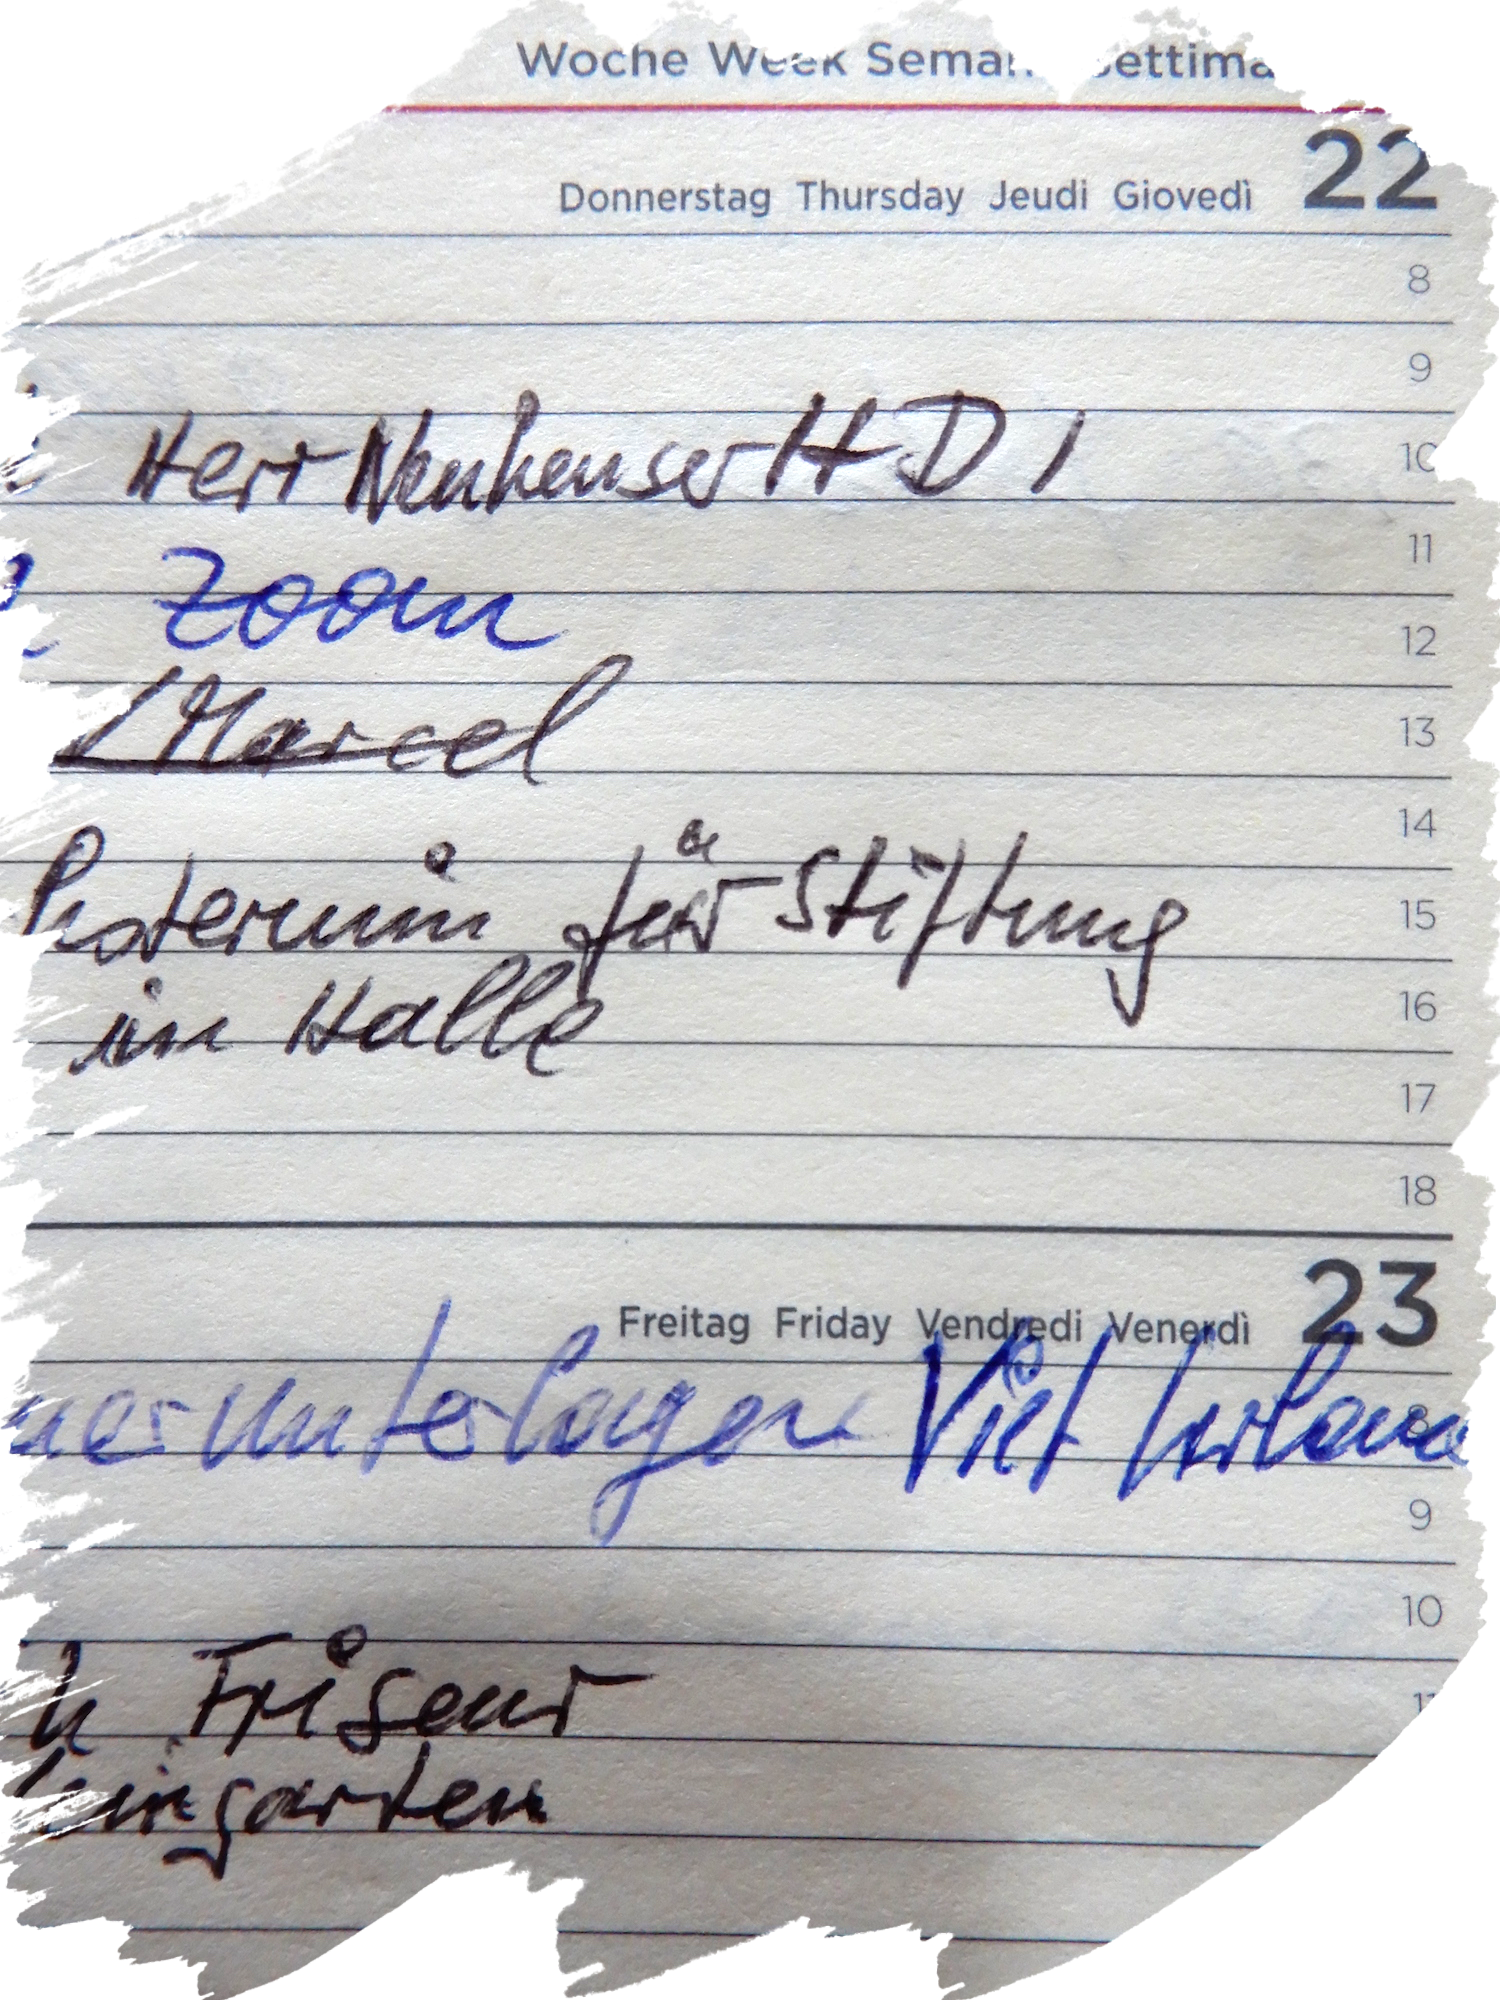 Woche Week
Donnerstag Thursday Jeudi Giovedì 22
8
9
Herr Neuheuser HDI 10
11
Zoom 12
Marcel 13
14
für Stiftung 15
in Halle 16
17
18
Freitag Friday Vendredi Venerdì 23
unterlagen Viet 8
9
10
Friseur 11